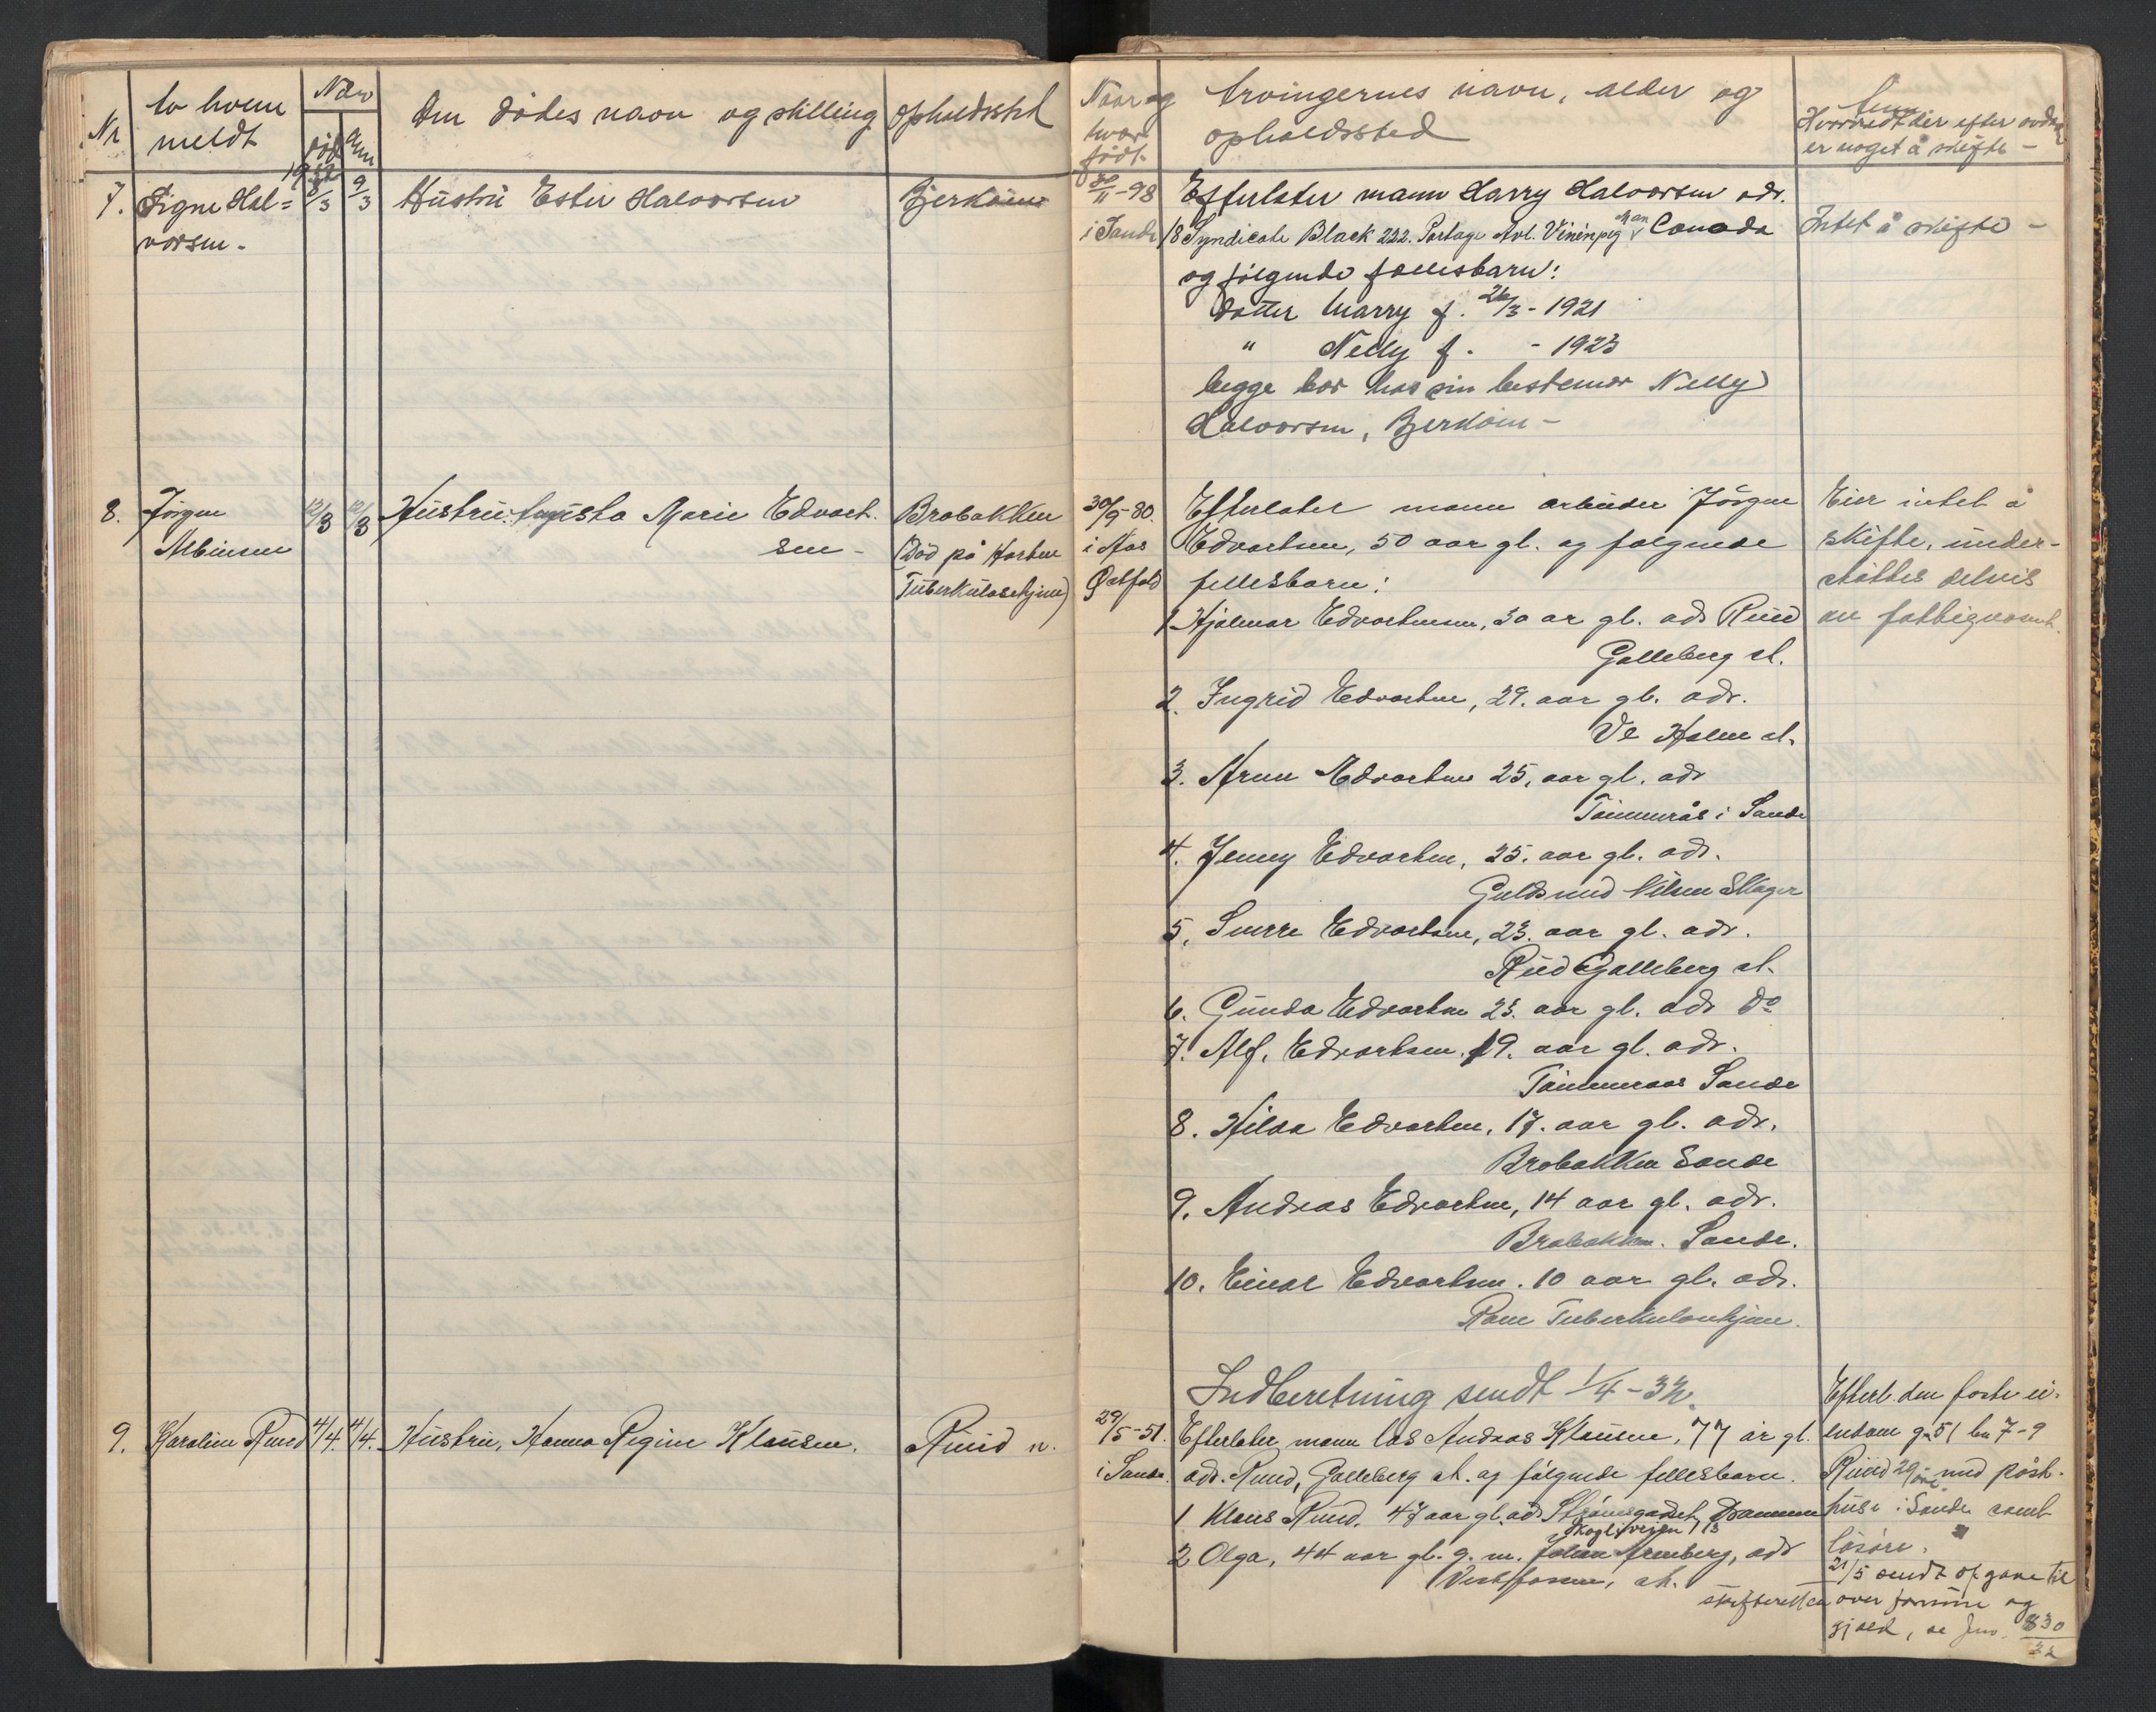 Nr
Av hvem meldt
Naar
død
anm
1932
Den dødes navn og stilling
Opholdssted
Naar og hvor født.
Arvingernes navn, alder og opholdssted
Hvorvidt der efter avdøde er noget å skifte -
7.
Signe Hal=
vorsen.
8/3
9/3
Hustru Ester Halvorsen
Bjerkøen
30/11-98
i Sande
Efterlater mann Harry Halvorsen adr.
18 Syndicate Black 222. Portage Avl. Vininpeg Man Canada
og følgende fællesbarn:
datter Marry f. 26/3-1921
" Nelly f. - 1923
begge bor hos sin bestemor Nelly
Halvorsen, Bjerkøen -
Intet å skifte -
8.
Jørgen
Albinsen
12/3
12/3
Hustru: Augusta Marie Edvart-
sen -
Brobakken
(Død på Horten
Tuberkulosehjem)
30/9-80.
i Aas
Østfold
Efterlater mann arbeider Jørgen
Edvartsen, 50 aar gl. og følgende
fellesbarn:
1 Hjalmar Edvartsen, 30 ar gl. adr Ruud
Galleberg st.
2. Ingrid Edvartsen, 29. aar gl. adr.
Ve Holm st.
3. Arne Edvartsen 25. aar gl. adr
Tømmerås i Sande
4. Jenny Edvartsen, 25. aar gl. adr.
Guldsmed Nilsen Skager
5. Sverre Edvartsen, 23. aar gl. adr.
Rud Galleberg st.
6. Gunda Edvartsen 23. aar gl. adr do
7. Alf. Edvartsen. 19. aar gl. adr.
Tømmeraas Sande
8. Hilda Edvartsen, 17. aar gl. adr.
Brobakken Sande
9. Andreas Edvartsen, 14 aar gl. adr.
Brobakken. Sande.
10. Einar Edvartsen. 10 aar gl. adr.
Ram Tuberkulosehjem.
Indberetning sendt 1/4-32.
Eier intet å
skifte, under-
støttes delvis
av fattigvesenet.
9.
Karoline Ruud
4/4
4/4.
Hustru, Hanna Regine Klausen.
Ruud n.
29/5-51.
i Sande.
Efterlater mann Lars Andreas Klausen, 77 år gl.
adr. Ruud, Galleberg st. og følgende fellesbarn.
1 Klaus Ruud. 47 aar gl. adr Strømsgodset, Drammen
Skogliveien 113
2 Olga, 44 aar gl. g. m. Johan Arenberg, adr
Vestfossen, st.
Efterl. den faste ei-
endom gn 51 bn 7-9
Ruud 29 øre med påst.
huse i Sande samt
løsøre.
21/5 sendt opgave til
skifteretten over formue og
gjæld, se Jnr. 830/32